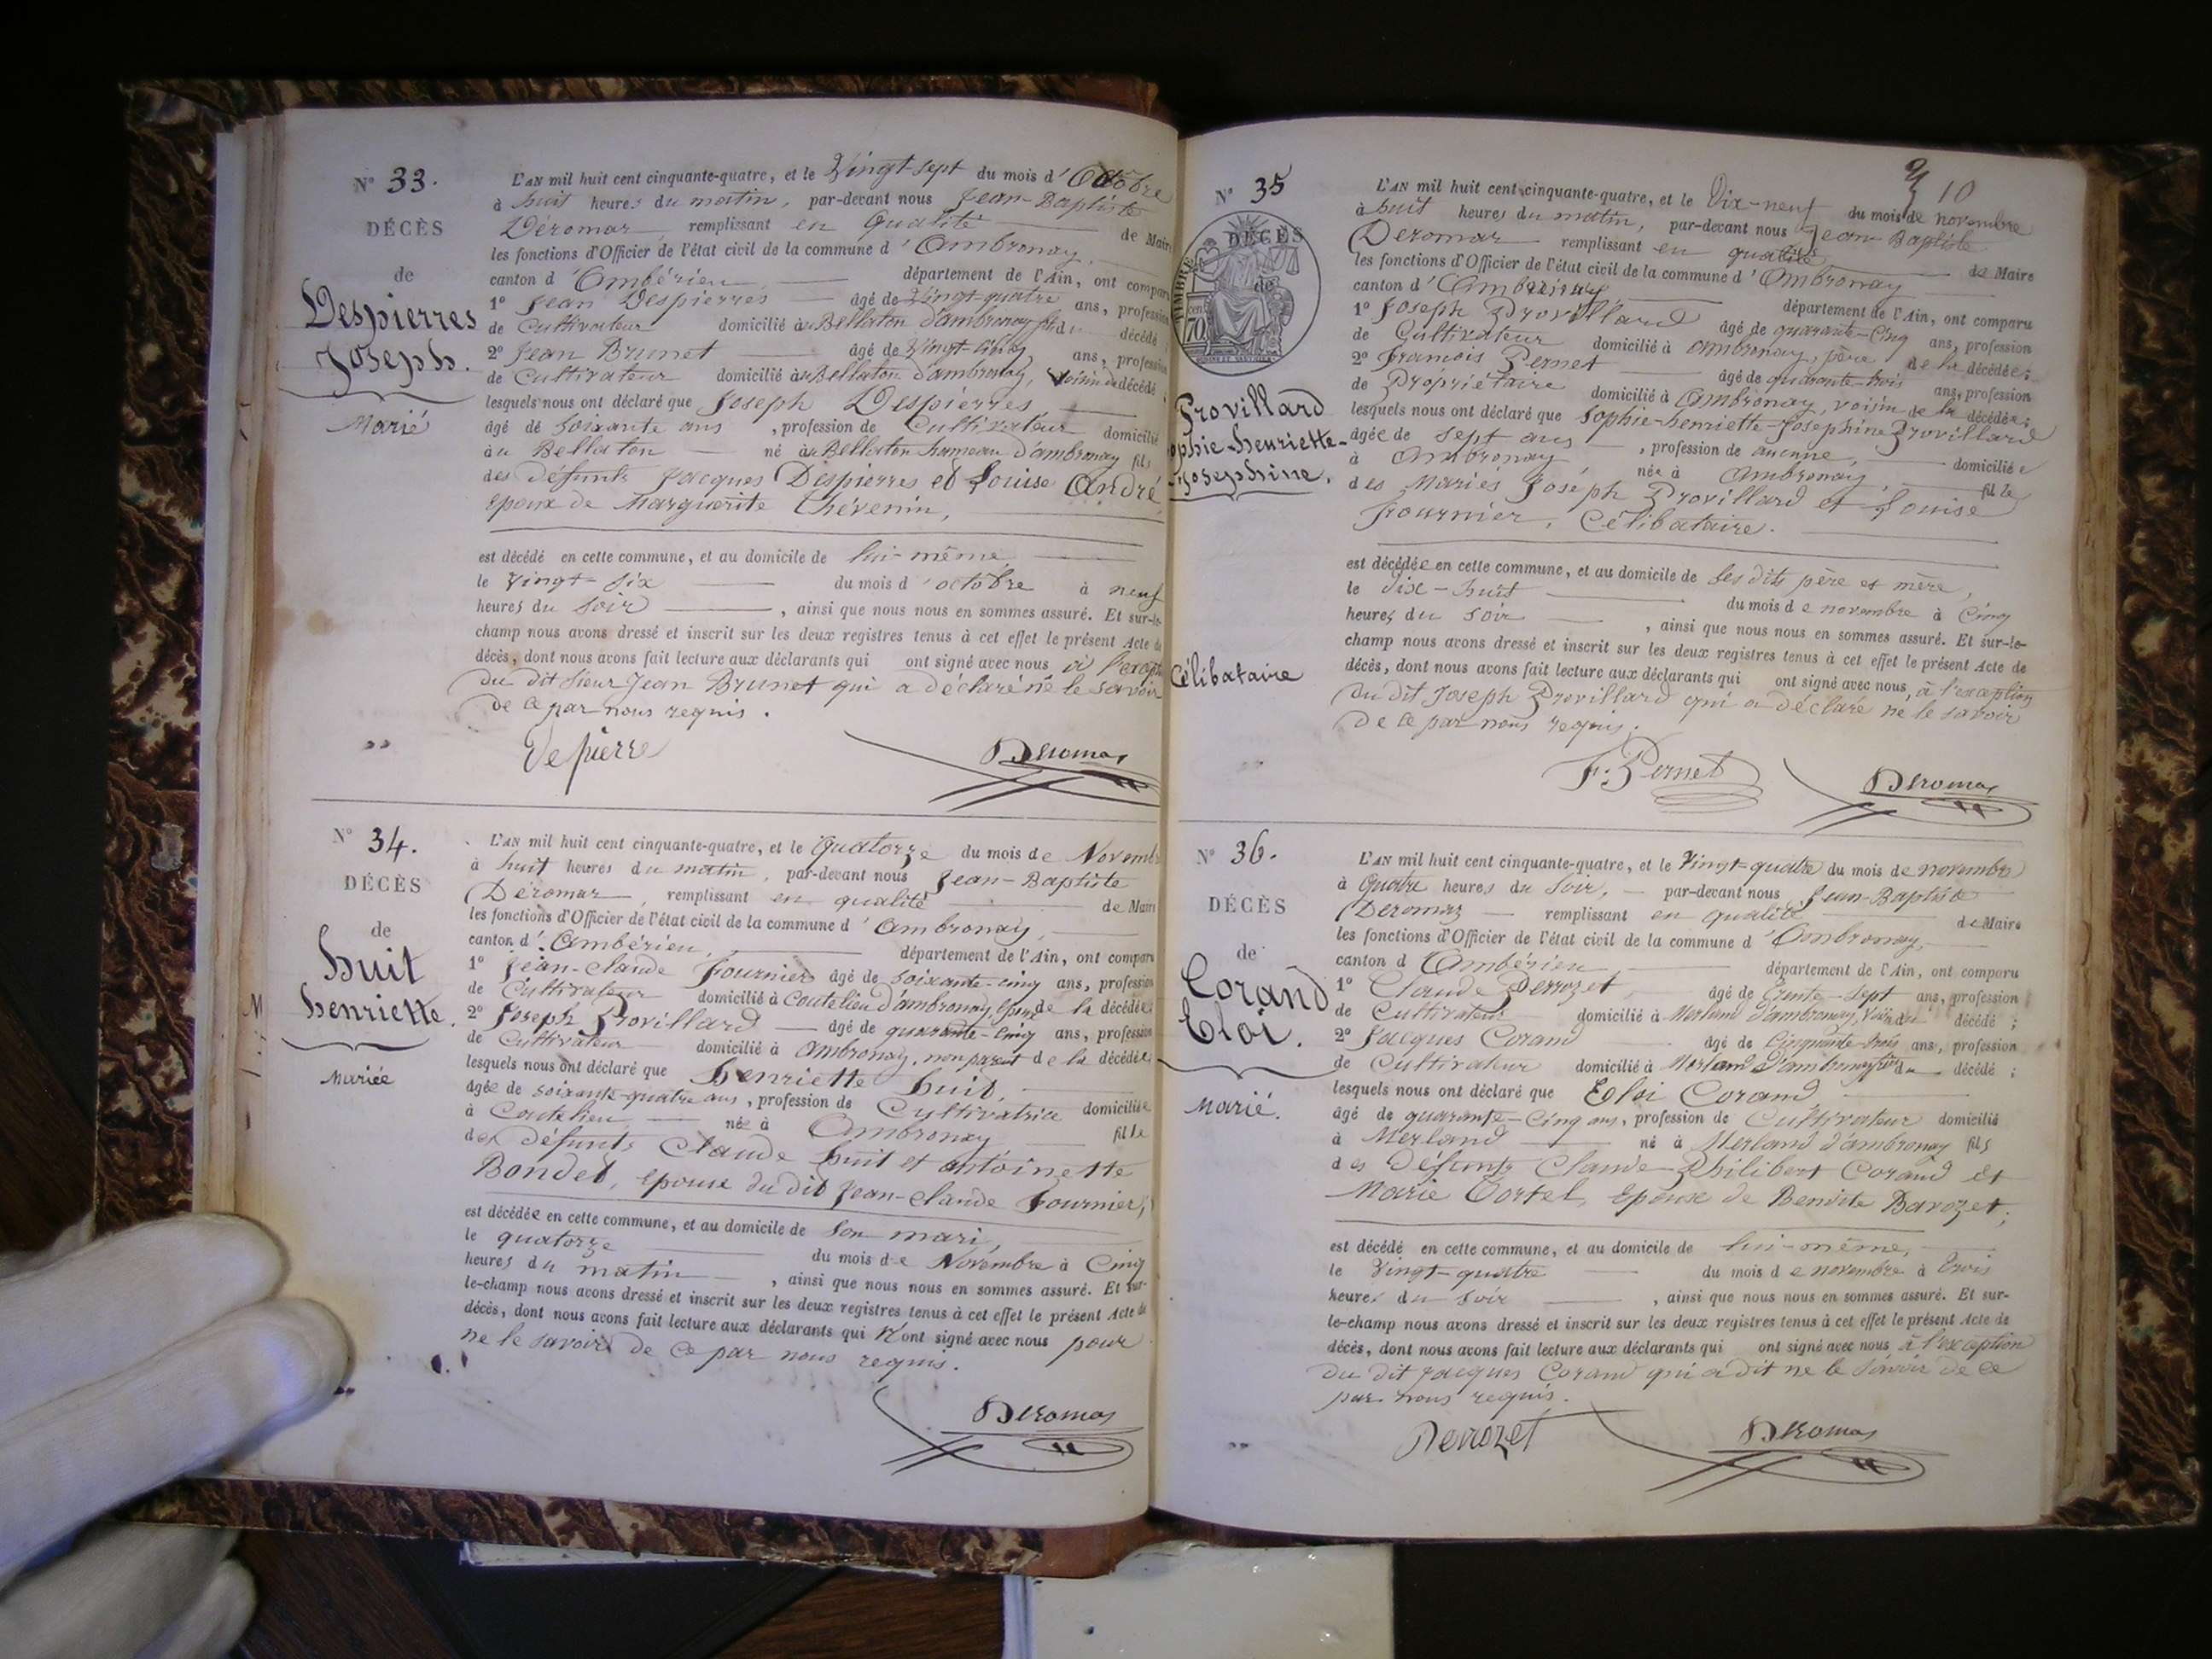 N° 33.
DÉCÈS
de
Despierres
Joseph.
Marié
L'AN mil huit cent cinquante-quatre, et le Vingt-sept du mois d'Octobre
à huit heures du matin, par-devant nous Jean-Baptiste
Déromas, remplissant en qualité de Maire
les fonctions d'Officier de l'état civil de la commune d'Ambronay,
canton d'Ambérieu, département de l'Ain, ont comparu
1° Jean Despierres âgé de Vingt-quatre ans, profession
de Cultivateur domicilié au Bellaton d'ambronay fils du décédé;
2° Jean Brunet âgé de Vingt-cinq ans, profession
de Cultivateur domicilié au Bellaton d'ambronay, voisin du décédé;
lesquels nous ont déclaré que Joseph Despierres
âgé de soixante ans, profession de Cultivateur domicilié
au Bellaton né au Bellaton hameau d'ambronay fils
des défunts Jacques Despierres et Louise André
époux de Marguerite Thévenin,
est décédé en cette commune, et au domicile de lui-même,
le vingt-six du mois d'octobre à neuf
heures du soir, ainsi que nous nous en sommes assuré. Et sur-le-
champ nous avons dressé et inscrit sur les deux registres tenus à cet effet le présent Acte de
décès, dont nous avons fait lecture aux déclarants qui ont signé avec nous à l'except
du dit sieur Jean Brunet qui a déclaré ne le savoir
de ce par nous requis.
Depierre Deromas
N° 34.
DÉCÈS
de
huit
henriette.
Mariée
L'AN mil huit cent cinquante-quatre, et le Quatorze du mois de Novembre
à huit heures du matin, par-devant nous Jean-Baptiste
Déromas, remplissant en qualité de Maire
les fonctions d'Officier de l'état civil de la commune d'Ambronay,
canton d'Ambérieu, département de l'Ain, ont comparu
1° Jean-Claude Fournier âgé de soixante-cinq ans, profession
de Cultivateur domicilié à Coutelieu d'ambronay, époux de la décédée;
2° Joseph Provillard âgé de quarante-cinq ans, profession
de Cultivateur domicilié à Ambronay, non parent de la décédée;
lesquels nous ont déclaré que henriette huit,
âgée de soixante-quatre ans, profession de Cultivatrice domiciliée
à Coutelieu née à Ambronay fille
des défunts Claude huit et antoinette
Bondet, épouse du dit Jean-Claude Fournier,
est décédée en cette commune, et au domicile de son mari,
le quatorze du mois de Novembre à Cinq
heures du matin, ainsi que nous nous en sommes assuré. Et sur-
le-champ nous avons dressé et inscrit sur les deux registres tenus à cet effet le présent Acte de
décès, dont nous avons fait lecture aux déclarants qui n'ont signé avec nous pour
ne le savoir de ce par nous requis.
Deromas
10
N° 35
DÉCÈS
de
TIMBRE
70
Provillard
Sophie-henriette-
Josephine.
Célibataire
L'AN mil huit cent cinquante-quatre, et le Dix-neuf du mois de novembre
à huit heures du matin, par-devant nous Jean Baptiste
Deromas remplissant en qualité de Maire
les fonctions d'Officier de l'état civil de la commune d'Ambronay
canton d'Ambronay département de l'Ain, ont comparu
1° Joseph Provillard âgé de quarante-Cinq ans, profession
de Cultivateur domicilié à ambronay, père de la décédée;
2° Francois Pernet âgé de quarante-trois ans, profession
de Propriétaire domicilié à Ambronay, voisin de la décédée;
lesquels nous ont déclaré que Sophie-henriette-Josephine Provillard
âgée de sept ans, profession de aucune, domiciliée
à Ambronay née à Ambronay, fille
des Mariés Joseph Provillard et Louise
Fournier, Célibataire.
est décédée en cette commune, et au domicile de ses dits père et mère,
le dix-huit du mois de novembre à Cinq
heures du soir, ainsi que nous nous en sommes assuré. Et sur-le-
champ nous avons dressé et inscrit sur les deux registres tenus à cet effet le présent Acte de
décès, dont nous avons fait lecture aux déclarants qui ont signé avec nous, à l'exception
du dit Joseph Provillard qui a déclaré ne le savoir
de ce par nous requis.
F. Pernet Deromas
N° 36.
DÉCÈS
de
Corand
Eloi.
Marié.
L'AN mil huit cent cinquante-quatre, et le Vingt-quatre du mois de novembre
à Quatre heures du soir, par-devant nous Jean-Baptiste
Deromas remplissant en qualité de Maire
les fonctions d'Officier de l'état civil de la commune d'Ambronay,
canton d'Ambérieu département de l'Ain, ont comparu
1° Claude Perrozet, âgé de Trente-sept ans, profession
de Cultivateur domicilié à Merland d'ambronay, voisin du décédé;
2° Jacques Corand âgé de Cinquante-trois ans, profession
de Cultivateur domicilié à Merland d'ambronay frère du décédé;
lesquels nous ont déclaré que Eloi Corand
âgé de quarante-Cinq ans, profession de Cultivateur domicilié
à Merland né à Merland d'ambronay fils
des défunts Claude-Philibert Corand et
Marie Tortel, Epouse de Benoite Barozet;
est décédé en cette commune, et au domicile de lui-même,
le Vingt-quatre du mois de novembre à Trois
heures du soir, ainsi que nous nous en sommes assuré. Et sur-
le-champ nous avons dressé et inscrit sur les deux registres tenus à cet effet le présent Acte de
décès, dont nous avons fait lecture aux déclarants qui ont signé avec nous à l'exception
du dit Jacques Corand qui a dit ne le savoir de ce
par nous requis.
Perrozet Deromas